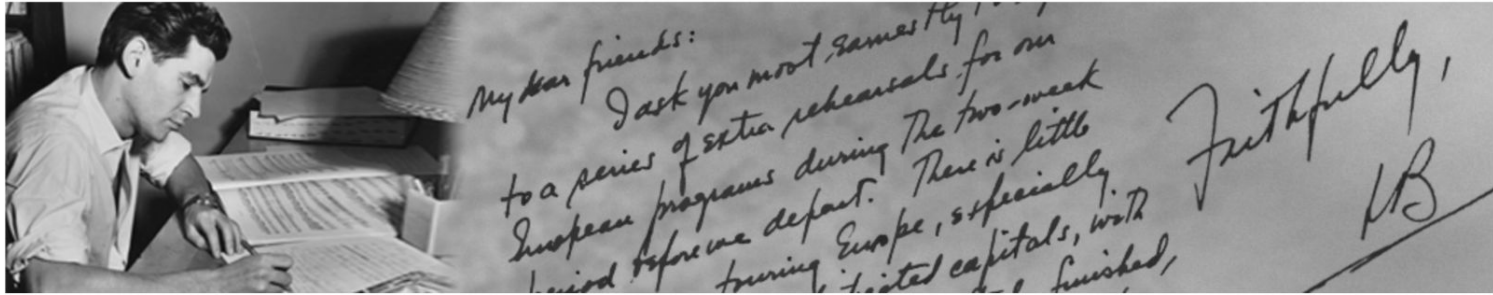 My dear friends:
I ask you most earnestly
to a series of extra rehearsals for our
European programs during the two-week
period before we depart. There is little
touring Europe, especially
capitals, with
finished,
Faithfully,
LB